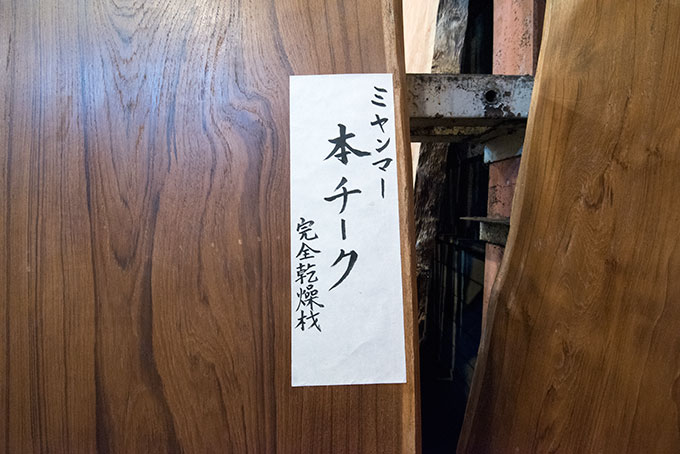 ミャンマー
本チーク
完全乾燥材